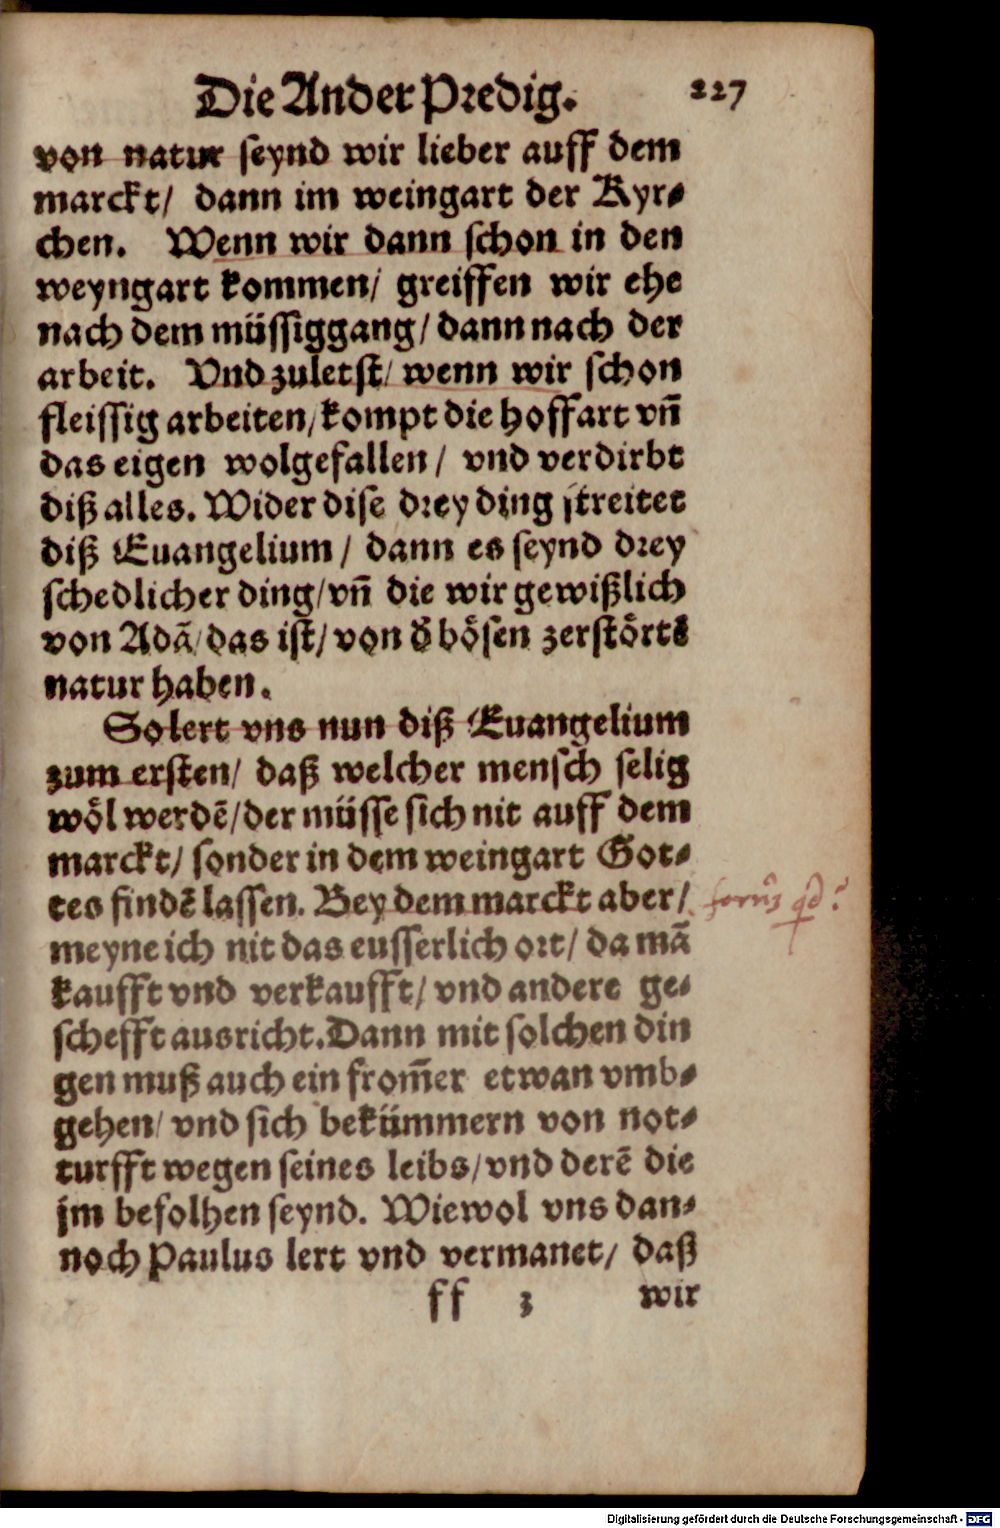 Die Ander Predig. 227
von natur seynd wir lieber auff dem
marckt/ dann im weingart der Kyr⸗
chen. Wenn wir dann schon in den
weyngart kommen/ greiffen wir ehe
nach dem müssiggang/ dann nach der
arbeit. Vnd zuletst/ wenn wir schon
fleissig arbeiten/ kompt die hoffart vñ
das eigen wolgefallen/ vnd verdirbt
diß alles. Wider dise drey ding streitet
diß Euangelium/ dann es seynd drey
schedlicher ding/ vñ die wir gewißlich
von Adã/ das ist/ von d̕ bösen zerstörtẽ
natur haben.
So lert vns nun diß Euangelium
zum ersten/ daß welcher mensch selig
wöl werdẽ/ der müsse sich nit auff dem
marckt/ sonder in dem weingart Got⸗
tes findẽ lassen. Bey dem marckt aber/
meyne ich nit das eusserlich ort/ da mã
kaufft vnd verkaufft/ vnd andere ge⸗
schefft ausricht. Dann mit solchen din
gen muß auch ein from̃er etwan vmb⸗
gehen/ vnd sich bekümmern von not⸗
turfft wegen seines leibs/ vnd derẽ die
jm befolhen seynd. Wiewol vns dan⸗
noch Paulus lert vnd vermanet/ daß
ff 3 wir
Digitalisierung gefördert durch die Deutsche Forschungsgemeinschaft - DFG